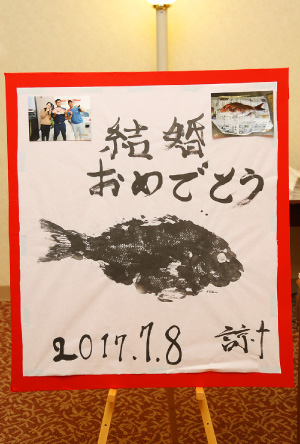 結婚
おめでとう
2017.7.8